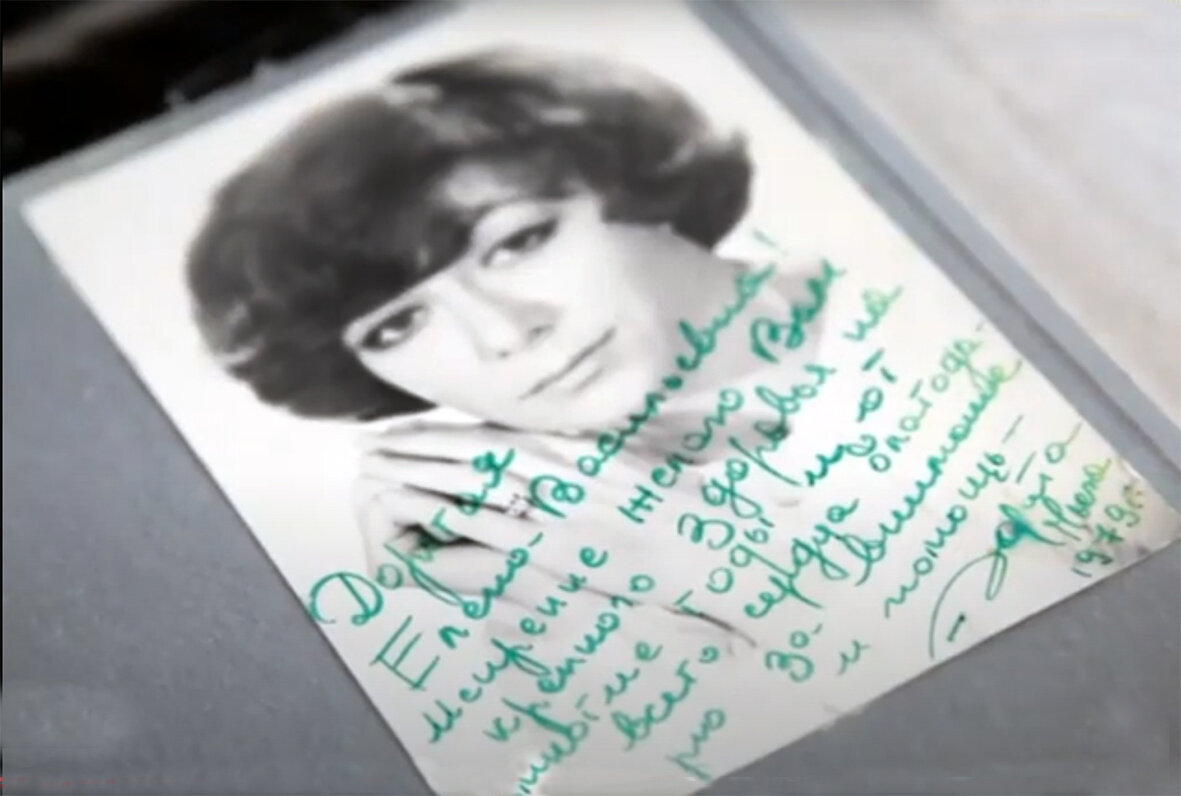 Дорогая
Елена Васильевна!
искренне желаю Вам
крепкого здоровья на
многие годы и от
всего сердца благода-
рю за внимание
и помощь –
1979г.